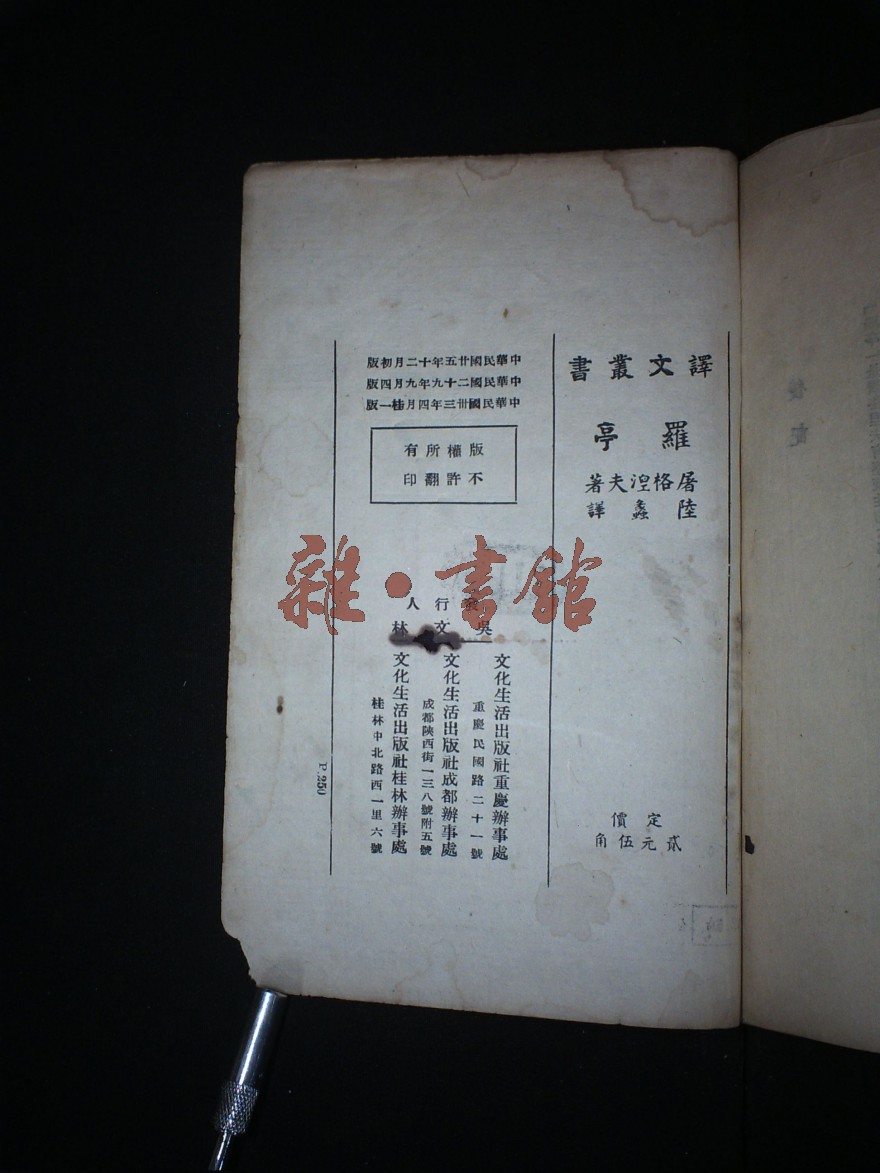 譯文叢書
羅亭
屠格涅夫著
陸蠡譯
定價
貳元伍角
中華民國廿五年十二月初版
中華民國二十九年九月四版
中華民國卅三年四月桂一版
版權所有
不許翻印
發行人
吳文林
文化生活出版社重慶辦事處
重慶民國路二十一號
文化生活出版社成都辦事處
成都陝西街一三八號附五號
文化生活出版社桂林辦事處
桂林中北路西一里六號
P.250
雜·書館
後記